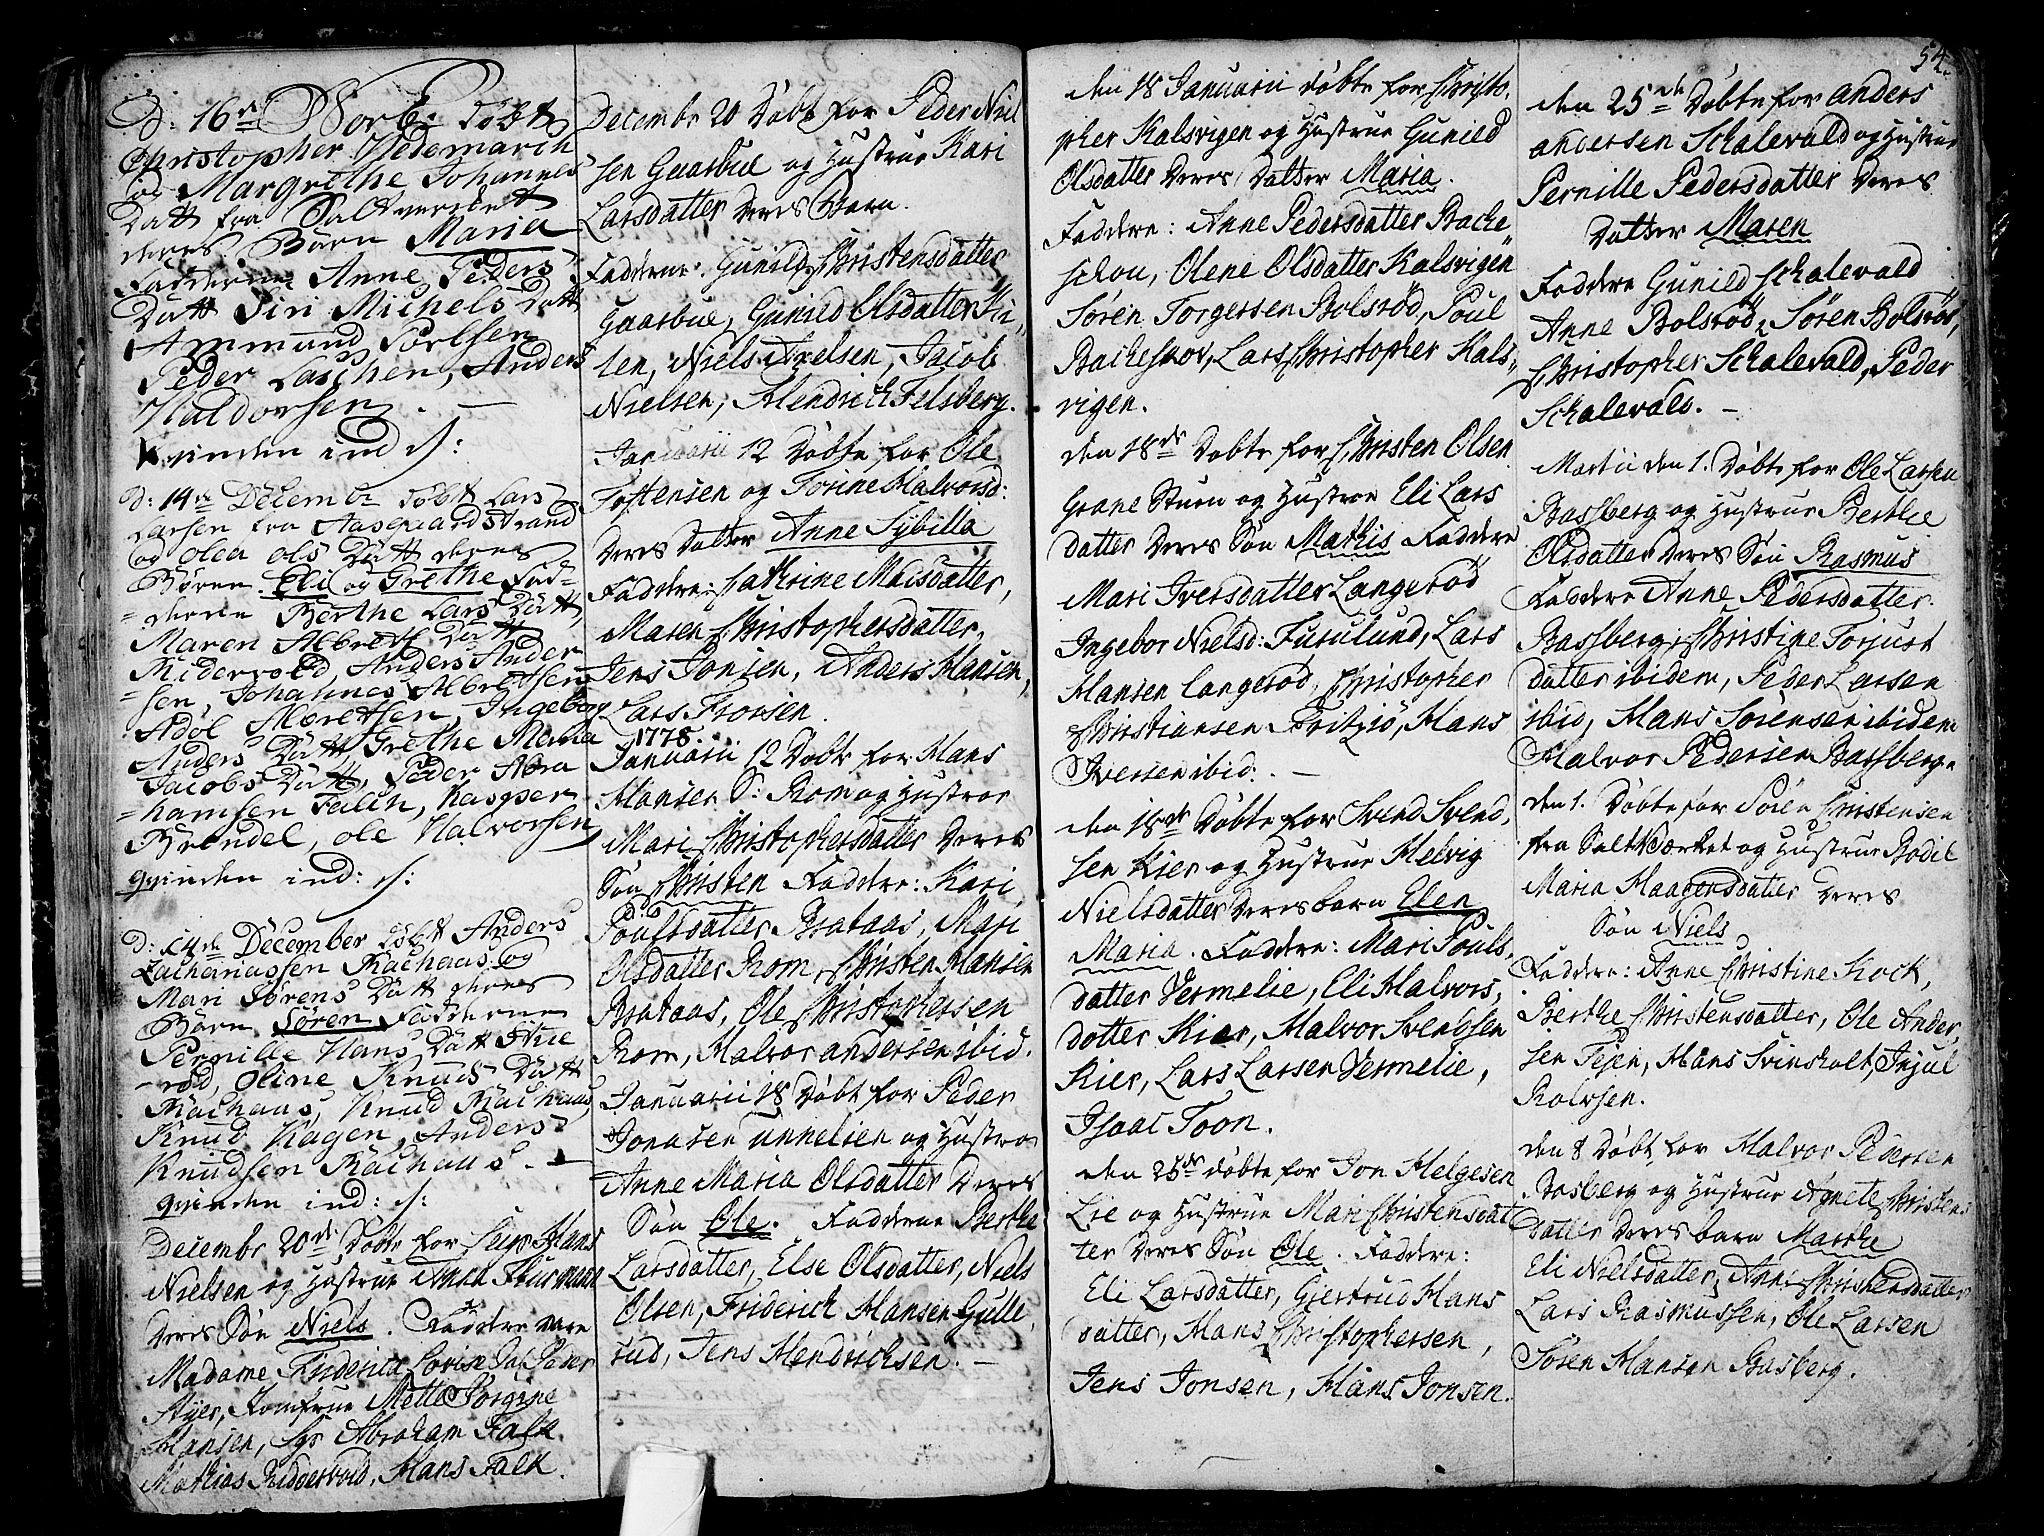 D: 16de Novbr: Döbt
Christopher Hedemarck
og Margrethe Johannes
Datt fra Saltverket
deres Barn Maria
Fadderne Anne Peders
Datt Siri Michels Datt
Ammund
Peder Larschen, Anders
Haldorsen. —
Kvinden ind ./:
D: 14de Decembr Döbt Lars
Larsen fra Aasgaardstrand
og Olea Ols Datt deres
Börn Eli og Grethe Fad-
=derne Berthe Lars Datt,
Maren Albrett Datt
Ridervold, Anders Ander
=sen, Johannes Albretsen
Adol Albretsen, Ingeborg
Anders Datt, Grethe Maria
Jacobs Datt, Peder Abra
=hamsen Falch, Kasper
Brendel, Ole Halvorsen
qvinden ind: ./:
D: 14de December Döbt Anders
Zachariassen Rachaas og
Mari Sörens Datt deres
Barn Sören Fadderne
Pernille Hans Datt
röd, Oline Knuds Datt
Rachaas, Knud Rachaas,
Knud Hagen, Anders
Knudsen Rachaas. —
qvinden ind: ./:
Decembr 20de Döbt for Seigr Hans
Nielsen og Hustrue Anna Thurmann
Deres Sön Niels. Faddere vare
Madame Friderica Lovise Sal. Peder
Ayer, Jomfrue Mette Jörgine
Hansen, Sgr Abraham Falk.
Mathias Riddervold, Hans Falk.
Decembr 20 Döbt for Peder Niel
sen Gaasbue og Hustrue Kari
Larsdatter Deres Barn.
Fadderne: Gunild Christensdatter
Gaasbue, Gunild Olsdatter
Niels Axelsen, Jacob
Nielsen, Hendrich Felsberg.
Januarii 12 Döbte for Ole
Toftensen og Torine Halvorsd:
Deres Datter Anne Sybilla
Faddere: Cathrine Maisdatter,
Maren Christophersdatter,
Jens Jonsen, Anders Hansen,
Lars Frorsen.
1778.
Januarii 12 Döbt for Hans
Hansen S: Rom og Hustroe
Mari Christophersdatter Deres
Sön Christen Faddere: Kari
Poulsdatter Brataas, Mari
Olsdatter Rom, Christen Hansen
Brataas, Ole Christophersen
Rom, Halvor Andersen ibid.
Januarii 18 Döbt for Peder
Jonasen Unnelsen og Hustroe
Anne Maria Olsdatter Deres
Sön Ole. Fadderne Berthe
Larsdatter, Else Olsdatter, Niels
Olsen, Friderich Hansen Gulle,
rud, Jens Hendrichsen. —
54.
Den 18 Januarii döbte for Christo,
pher Kalsvigen og Hustrue Gunild
Olsdatter Deres Datter Maria.
Faddere: Anne Pedersdatter Bache
schou, Olene Olsdatter Kalsvigen
Sören Torgersen Bolsröd, Poul
Bacheskov, Lars Christopher Kals,
vigen.
Den 18de Döbte for Christen Olsen
Grane Stuen og Hustroe Eli Lars
datter Deres Sön Mathis Faddere
Mari Iversdatter Langeröd
Ingebor Nielsd: Furulund, Lars
Hansen Langeröd, Christopher
Christiansen Fritzjö, Hans
Iversen ibid: . —
Den 18de Döbte for Svend Svend,
sen Kier og Hustrue Helvig
Nielsdatter Deres barn Elen
Maria. Faddere: Mari Pouls,
datter Vermelie, Eli Halvors,
dotter Kier, Halvor Svendsen
Kier, Lars Larsen Vermelie,
Isaac Toon.
Den 25de döbte for Jon Helgesen
Lie og Hustrue Mari Christensdat
ter Deres Sön Ole. Faddere:
Eli Larsdatter, Giertrud Hans
datter, Hans Christophersen,
Jens Jonsen, Hans Jonsen.
Den 25de Döbte for Anders
Andersen Schalevald og Hustrue
Pernille Pedersdatter Deres
Datter Maren
Faddere Gunild Schalevald
Anne Bolsröd, Sören Bolsröd,
Christopher Schalevald, Peder
Schalevald. —
Martii den 1. Döbte for Ole Larsen
Bassberg og Hustrue Berthe
Olsdatter Deres Sön Rasmus
Faddere Anne Pedersdatter
Bassberg, Christine Torjust
datter ibidem, Peder Larsen
ibid, Hans Sörensen ibidem
Halvor Pedersen Bassberg.
Den 1. Döbte for Sören Christensen
fra Salt Værket og Hustrue Bodil
Maria Haagensdatter Deres
Sön Niels
Faddere: Anne Christine Kock,
Berthe Christensdatter, Ole Ander,
sen Tejen, Hans Svinholt, Injul
Rolvsen.
Den 8 Döbt for Halvor Pedersen
Basberg og Hustrue Agnete Christens
Datter Deres barn Marthe
Eli Nielsdatter, Anne Christensdatter
Lars Rasmussen, Ole Larsen
Sören Hansen Basberg.